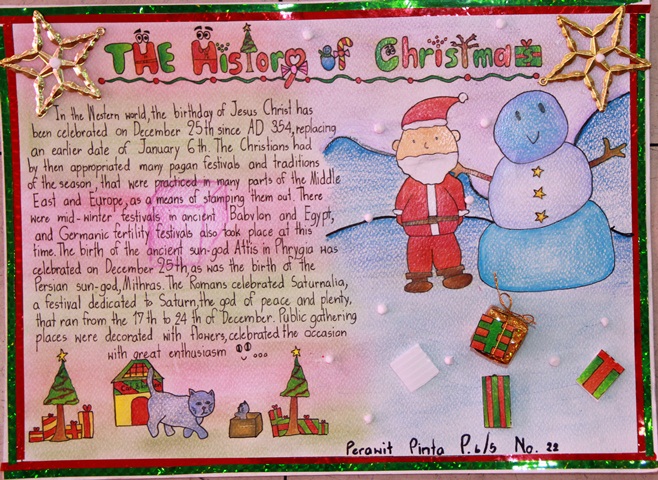 THE History of Christmas
In the Western world, the birthday of Jesus Christ has
been celebrated on December 25th since AD 354, replacing
an earlier date of January 6th. The Christians had
by then appropriated many pagan festivals and traditions
of the season, that were practiced in many parts of the Middle
East and Europe, as a means of stamping them out. There
were mid-winter festivals in ancient Babylon and Egypt,
and Germanic fertility festivals also took place at this
time. The birth of the ancient sun-god Attis in Phrygia was
celebrated on December 25th, as was the birth of the
Persian sun-god, Mithras. The Romans celebrated Saturnalia,
a festival dedicated to Saturn, the god of peace and plenty,
that ran from the 17th to 24th of December. Public gathering
places were decorated with flowers, celebrated the occasion
with great enthusiasm ...
Perawit Pinta P.6/5 No. 22